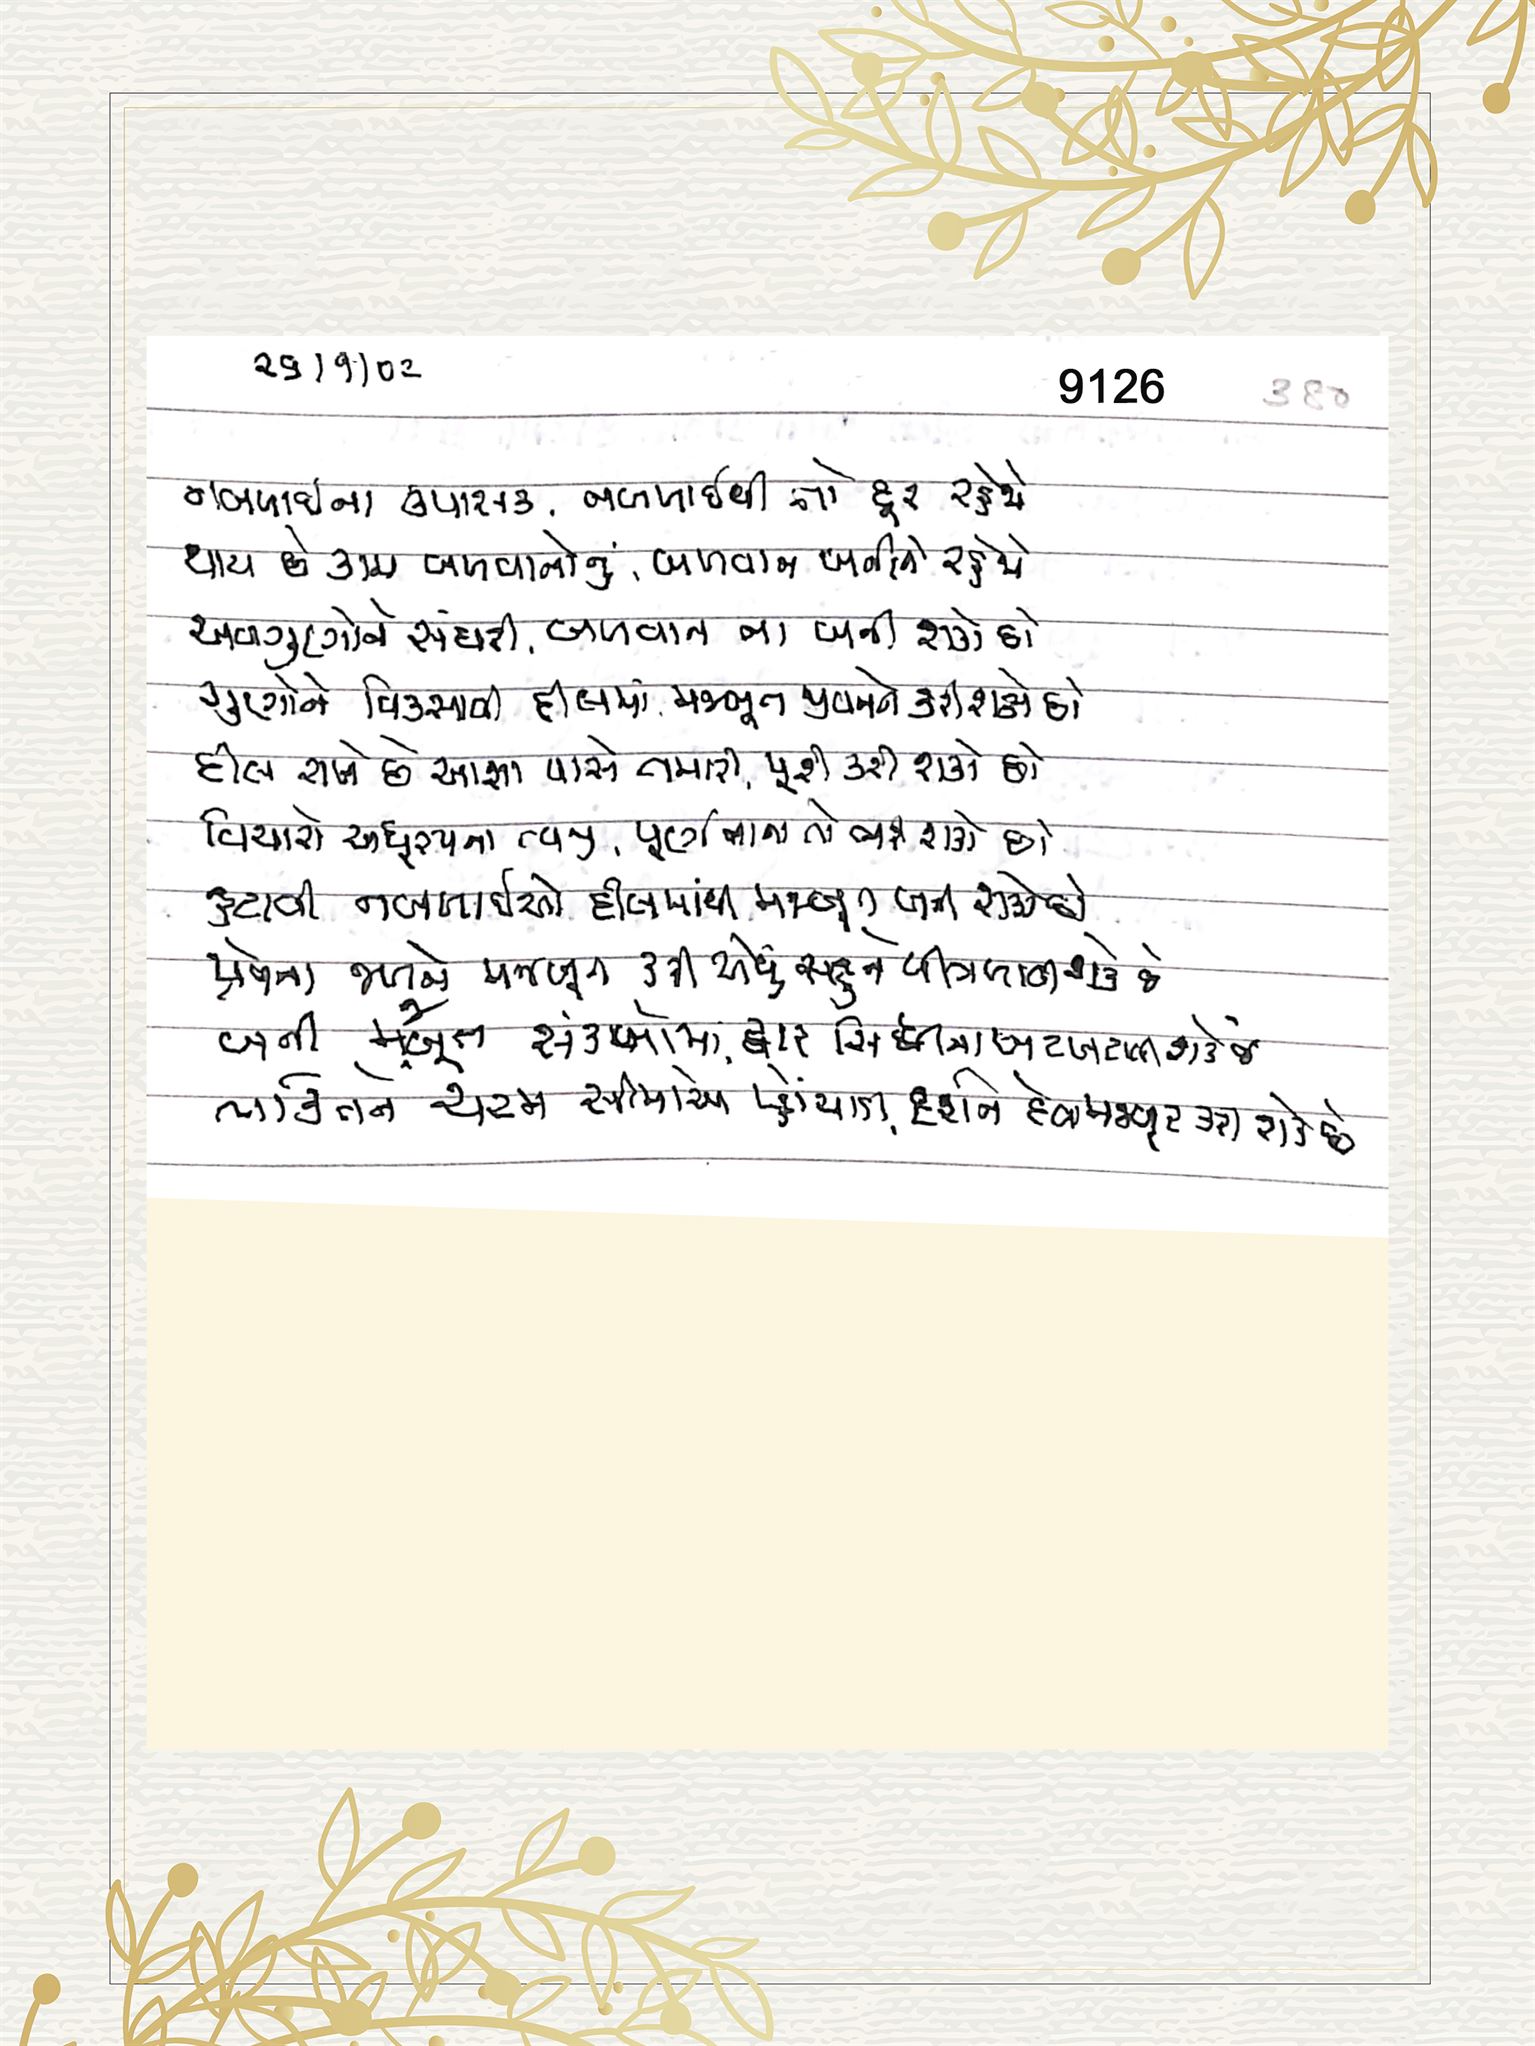 ૨૬/૧/૦૨
9126
૩૬૦
નબળાઈના ઉપાસક, નબળાઈથી તો દૂર રહેજે
થાય છે કામ બળવાનોનું, બળવાન બનીને રહેજે
અવગુણોને સંઘરી, બળવાન ના બની શકો છો
ગુણોને વિકસાવી દીલમાં, મજબૂત જીવનને કરી શકો છો
દીલ રાખે છે આશા પાસે તમારી, પૂરી કરી શકો છો
વિચારો અધૂરપના ત્યજી, પૂર્ણ માનવ તો બની શકો છો
હટાવી નબળાઈઓ દીલમાંથી, મજબૂત બની શકો છો
પ્રેમના જળને મજબૂત કરી એવું સહુને પીગળાવી શકે છે
બની મજબૂત સંકલ્પોમાં, દ્વાર સિદ્ધીના ખટખટાવી શકે છે
ભક્તિને ચરમ સીમાએ પહોંચાડી, દર્શન દેવા મજબૂર કરી શકે છે